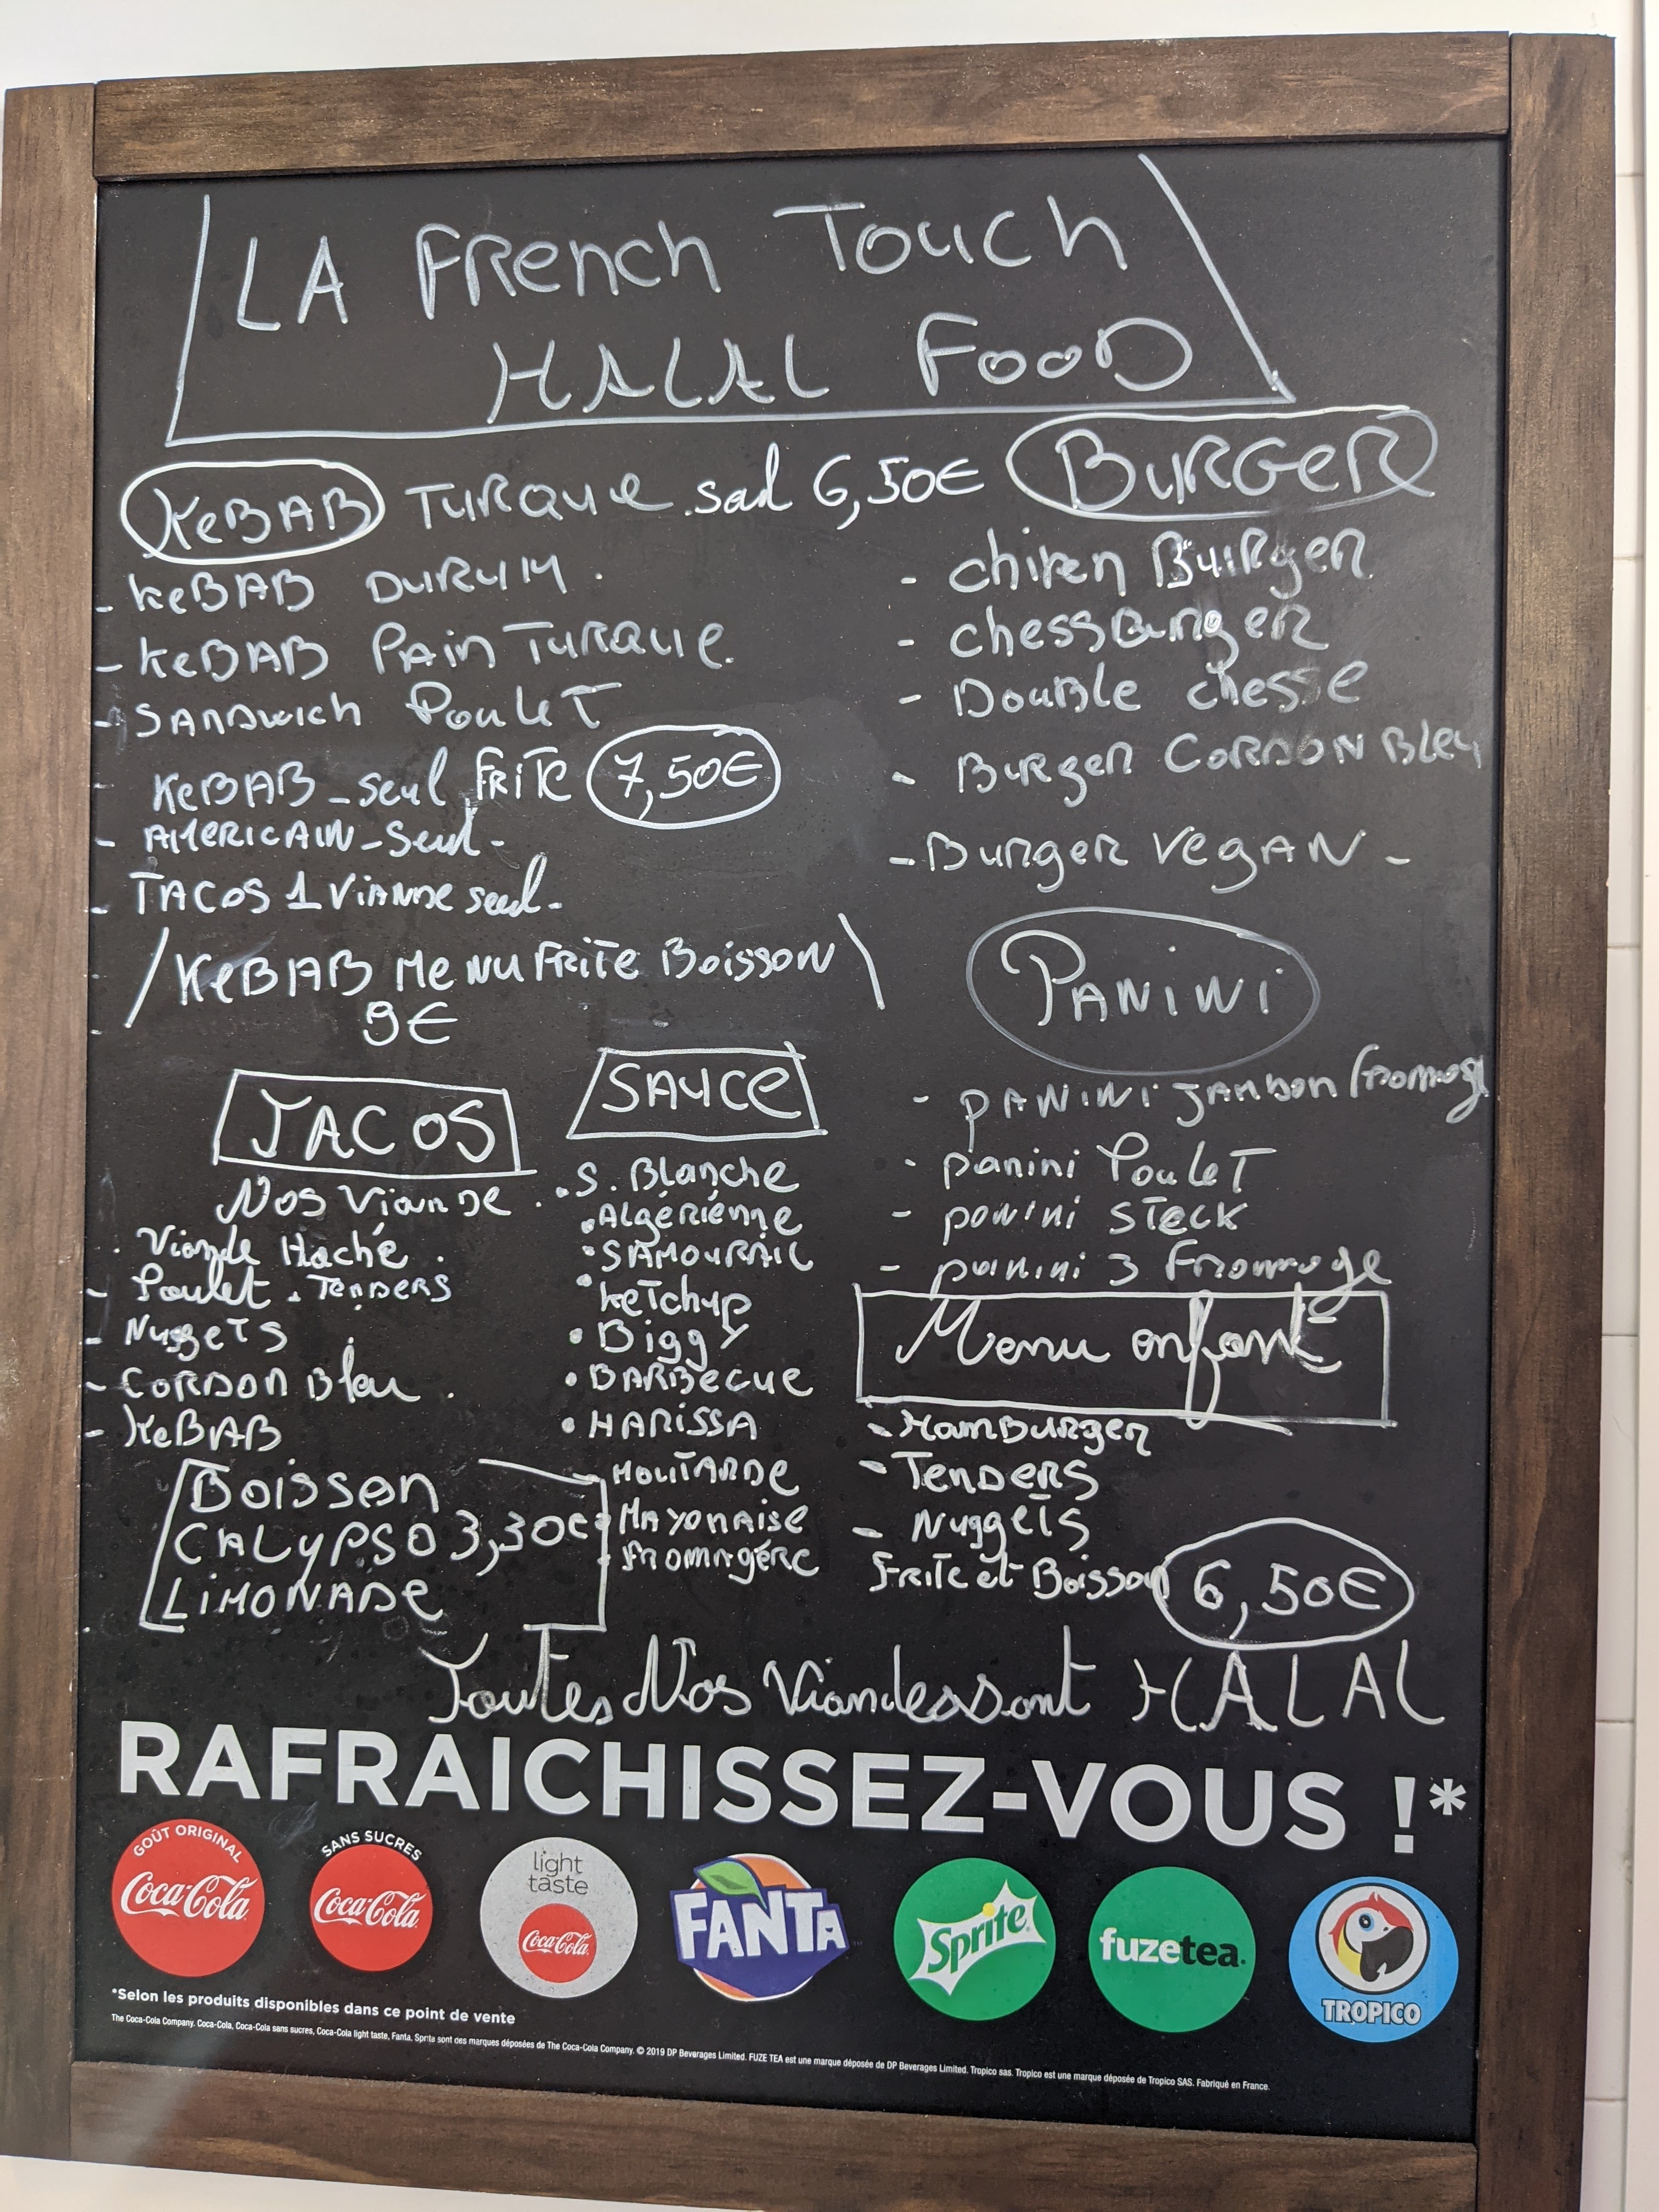 LA FRench Touch
HALAL FooD
KeBAB TURQue seul 6,50€
- KeBAB DURUM.
- KeBAB PAin TURQUe.
- SANDwich PouleT
- KeBAB - seul FRiTe 7,50€
- AMERICAIN - Seul -
- TACOS 1 ViANDe seul -
- / KeBAB MeNU FRiTe Boisson \
- 9€
BURGeR
- chiken BuRgeR
- chessBurgeR
- DouBle chesse
- BuRgeR CORDON Bleu
- BuRgeR VegAN -
PANiNi
- PANiNi JAMbon fromage
- panini PouleT
- panini STeck
- panini 3 fromage
TACOS
Nos Viande.
. Viande Haché.
- Poulet. TenDeRS
- NuggeTS
- CoRDON Bleu.
- KeBAB
SAUCe
. S. Blanche
. Algérienne
. SAMOURAIL
. KeTchup
. Biggy
. BARBecue
. HARiSSA
- MOUTARDe
- MAyonaise
- fromagère
Boisson
CALYPSO 3,30€
LiMONADe
Menu enfant
- HamBurger
- TenDeRS
- NuggeTS
FRiTe et Boisson 6,50€
Toutes Nos Viandes sont HALAL
RAFRAICHISSEZ-VOUS !*
GOÛT ORIGINAL
Coca-Cola
SANS SUCRES
Coca-Cola
light
taste
Coca-Cola
FANTA
Sprite
fuzetea
TROPICO
*Selon les produits disponibles dans ce point de vente
The Coca-Cola Company. Coca-Cola, Coca-Cola sans sucres, Coca-Cola light taste, Fanta, Sprite sont des marques déposées de The Coca-Cola Company. © 2019 DP Beverages Limited. FUZE TEA est une marque déposée de DP Beverages Limited. Tropico sas. Tropico est une marque déposée de Tropico SAS. Fabriqué en France.